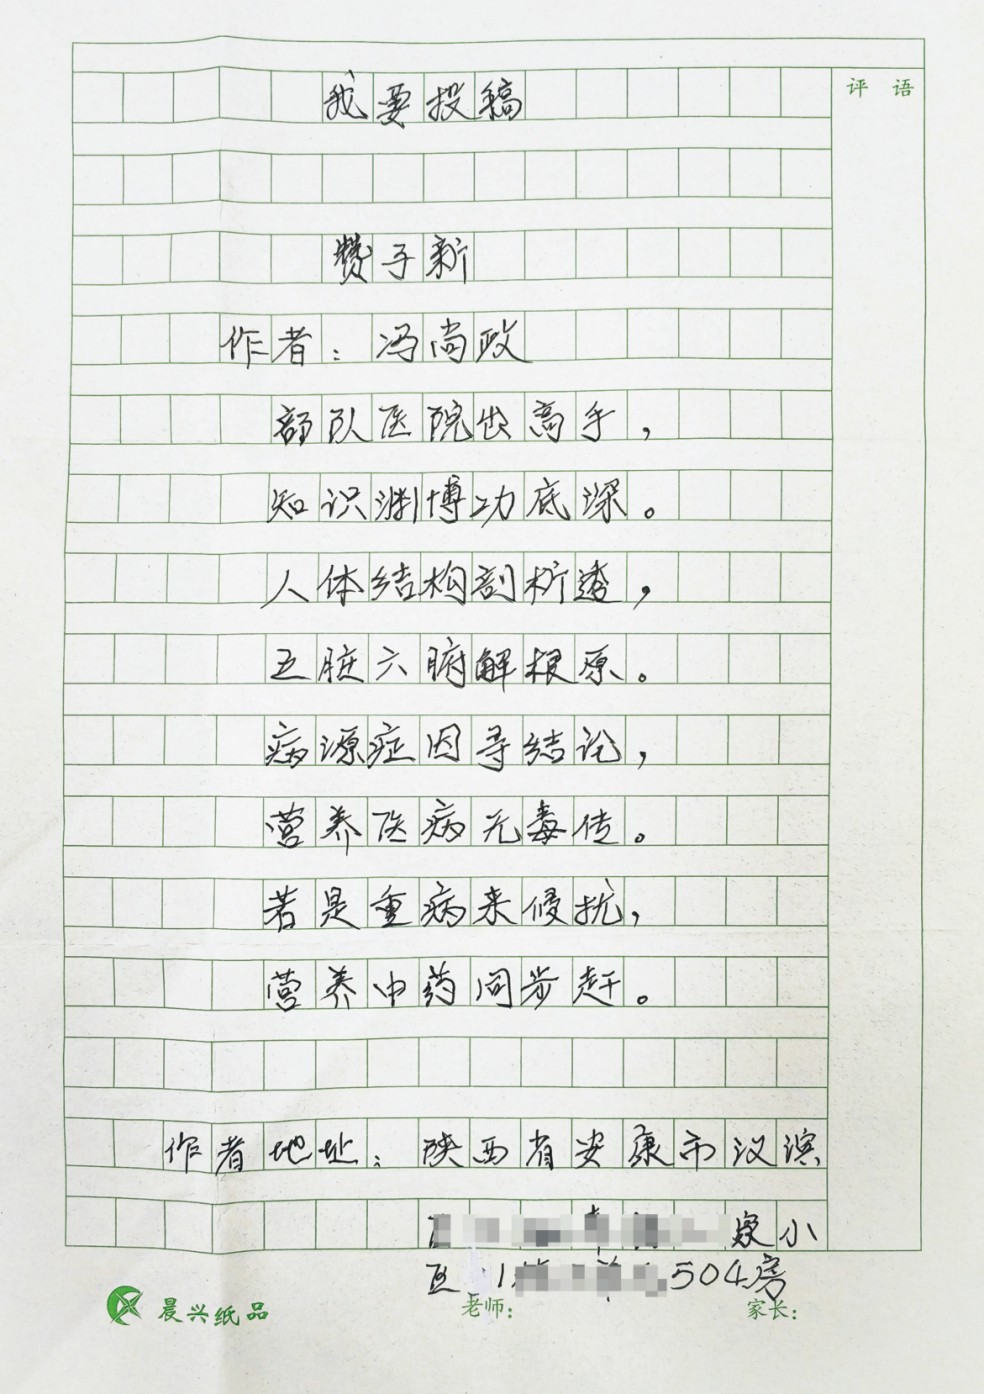 评 语
我要投稿
赞子新
作者：冯尚政
部队医院出高手，
知识渊博功底深。
人体结构剖析透，
五脏六腑解根原。
病源症因寻结论，
营养医病无毒传。
若是重病来侵扰，
营养中药同步赶。
作者地址：陕西省安康市汉滨
家小
区 1 504房
晨兴纸品 老师： 家长：